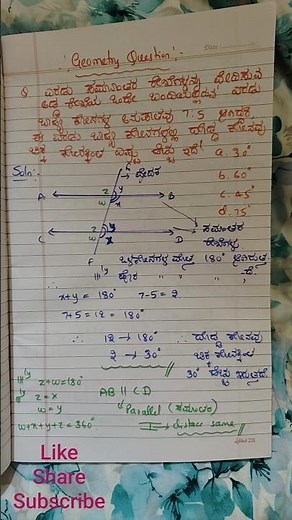 Geometry Question:
Q ಎರಡು ಸಮಾಂತರ ರೇಖೆಗಳನ್ನು ಛೇದಿಸುವ
ಒಂದೇ ಎರಡು
ಬಾಹ್ಯ ಕೋನಗಳ ಅನುಪಾತವು 7:5 ಆದರೆ
ಈ ಎರಡು ಬಾಹ್ಯ ಕೋನಗಳಲ್ಲಿ ದೊಡ್ಡ ಕೋನವು
ಚಿಕ್ಕ ಕೋನಕ್ಕಿಂತ ಎಷ್ಟು ಹೆಚ್ಚು ಇದೆ? a. 30°
b. 60°
Soln:- c. 45°
d. 75°
E ಛೇದಕ
A z y B
w x
C z y D ಸಮಾಂತರ
w x ರೇಖೆಗಳು
F ಒಳಕೋನಗಳ ಮೊತ್ತ 180° ಆಗಿರುತ್ತದೆ.
|||ly ಹೊರ " " "
∴ x+y = 180° 7-5=2
7+5=12 = 180°
∴ 12 → 180° ∴ ದೊಡ್ಡ ಕೋನವು
2 → 30° ಚಿಕ್ಕ ಕೋನಕ್ಕಿಂತ
30° ಹೆಚ್ಚು ಇರುತ್ತದೆ.
|||ly z+w=180°
z = x AB || CD
w = y Parallel (ಸಮಾಂತರ)
w+x+y+z=360° distace same
Like
Share
Subscribe